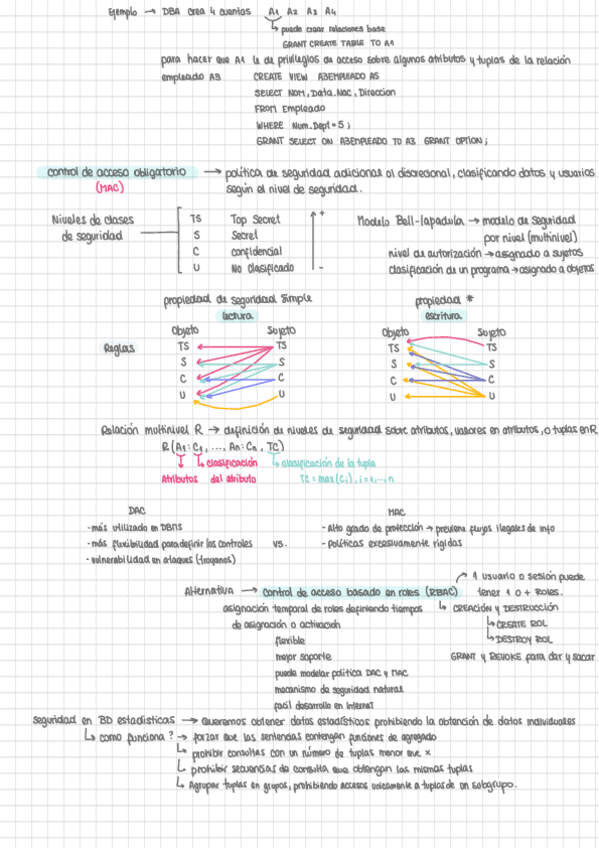 Ejemplo → DBA crea 4 cuentas A1 A2 A3 A4
puede crear relaciones base
GRANT CREATE TABLE TO A1
para hacer que A1 le de privilegios de acceso sobre algunos atributos y tuplas de la relación
empleado A3 CREATE VIEW A3EMPLEADO AS
SELECT NOM, Data.Nac, Direccion
FROM Empleado
WHERE Num.Dept=5;
GRANT SELECT ON A3EMPLEADO TO A3 GRANT OPTION;
control de acceso obligatorio → política de seguridad adicional al discrecional, clasificando datos y usuarios
(MAC) según el nivel de seguridad.
Niveles de clases
de seguridad
TS Top Secret +
S Secret
C confidencial
U No clasificado -
Modelo Bell-lapadula → modelo de seguridad
por nivel (multinivel)
nivel de autorización → asignado a sujetos
clasificación de un programa → asignado a objetos
propiedad de seguridad simple
lectura
propiedad *
escritura
Reglas
Objeto Sujeto
TS TS
S S
C C
U U
Objeto Sujeto
TS TS
S S
C C
U U
Relación multinivel R → definición de niveles de seguridad sobre atributos, valores en atributos, o tuplas en R
R(A1:C1, ..., An:Cn, TC)
clasificación
Atributos del atributo
clasificación de la tupla
TC = max(Ci), i=1,...,n
DAC
- más utilizado en DBMS
- más flexibilidad para definir los controles
- vulnerabilidad en ataques (troyanos)
vs.
MAC
- Alto grado de protección → previene flujos ilegales de info
- Políticas excesivamente rígidas
Alternativa → control de acceso basado en roles (RBAC)
1 usuario o sesión puede
tener 1 o + Roles.
asignación temporal de roles definiendo tiempos
de asignación o activación
flexible
mejor soporte
puede modelar política DAC y MAC
mecanismo de seguridad natural
facil desarrollo en Internet
CREACIÓN Y DESTRUCCIÓN
CREATE ROL
DESTROY ROL
GRANT y REVOKE para dar y sacar
seguridad en BD estadísticas → Queremos obtener datos estadísticos prohibiendo la obtención de datos individuales
como funciona? → forzar que las sentencias contengan funciones de agregado
prohibir consultas con un número de tuplas menor que x
prohibir secuencias de consulta que obtengan las mismas tuplas
Agrupar tuplas en grupos, prohibiendo accesos unicamente a tuplas de un subgrupo.